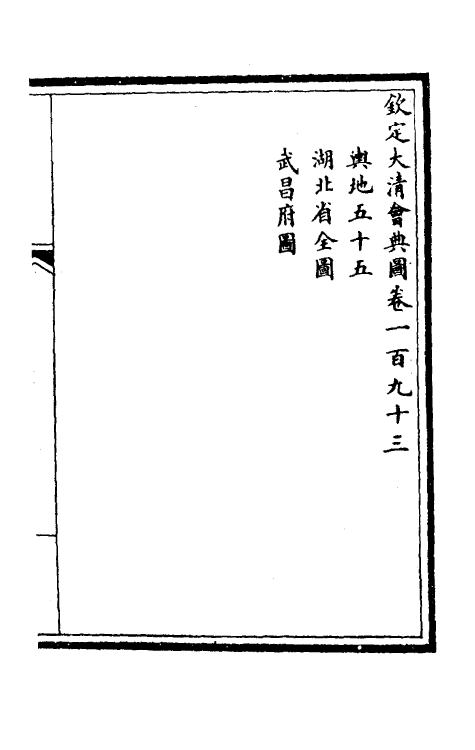 欽定大清會典圖卷一百九十三
輿地五十五
湖北省全圖
武昌府圖